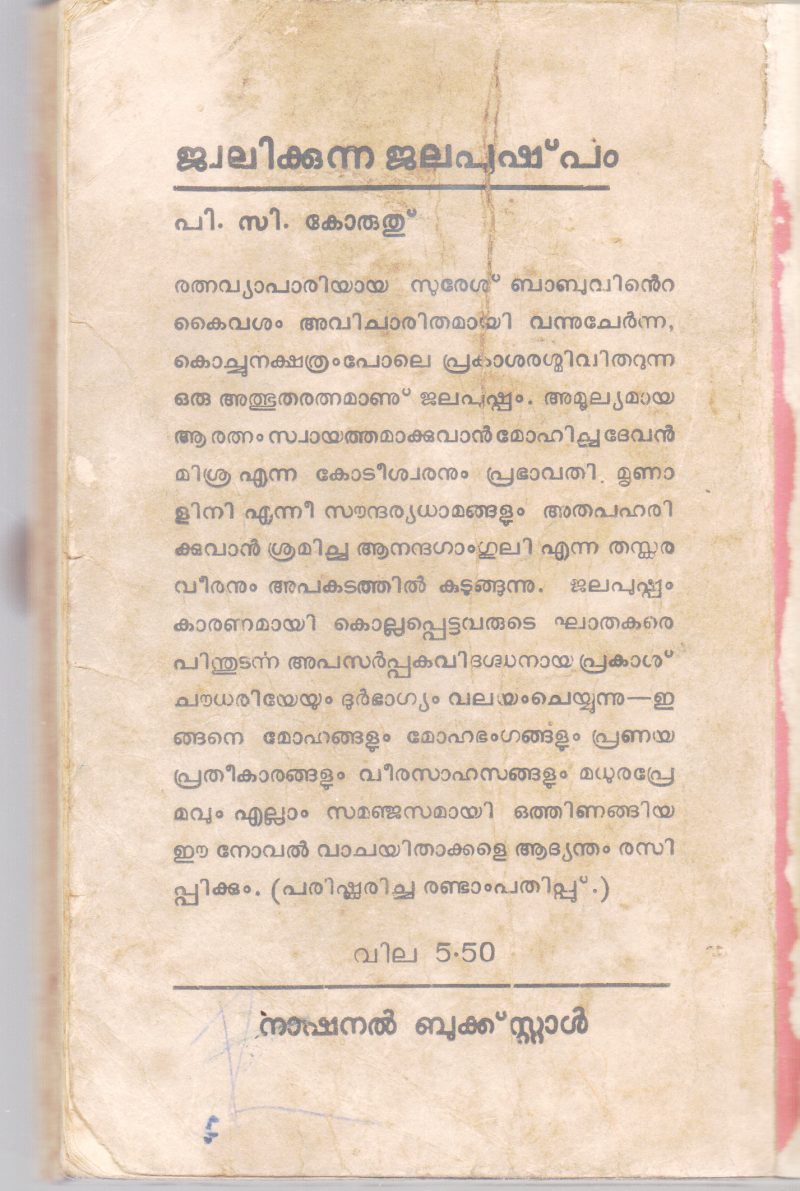 ജ്വലിക്കുന്ന ജലപുഷ്പം
പി. സി. കോരുതു്
രത്നവ്യാപാരിയായ സുരേശ് ബാബുവിൻെറ
കൈവശം അവിചാരിതമായി വന്നുചേർന്ന,
കൊച്ചുനക്ഷത്രംപോലെ പ്രകാശരശ്മിവിതറുന്ന
ഒരു അത്ഭുതരത്നമാണു് ജലപുഷ്പം. അമൂല്യമായ
ആ രത്നം സ്വായത്തമാക്കുവാൻ മോഹിച്ച ദേവൻ
മിശ്ര എന്ന കോടീശ്വരനും പ്രഭാവതി, മൃണാ
ളിനി എന്നീ സൗന്ദര്യധാമങ്ങളും അതപഹരി
ക്കുവാൻ ശ്രമിച്ച ആനന്ദഗാംഗുലി എന്ന തസ്കര
വീരനും അപകടത്തിൽ കുടുങ്ങുന്നു. ജലപുഷ്പം
കാരണമായി കൊല്ലപ്പെട്ടവരുടെ ഘാതകരെ
പിന്തുടർന്ന അപസർപ്പകവിദഗ്ദ്ധനായ പ്രകാശ്
ചൗധരിയേയും ദുർഭാഗ്യം വലയംചെയ്യുന്നു—ഇ
ങ്ങനെ മോഹങ്ങളും മോഹഭംഗങ്ങളും പ്രണയ
പ്രതീകാരങ്ങളും വീരസാഹസങ്ങളും മധുരപ്രേ
മവും എല്ലാം സമഞ്ജസമായി ഒത്തിണങ്ങിയ
ഈ നോവൽ വാചയിതാക്കളെ ആദ്യന്തം രസി
പ്പിക്കും. (പരിഷ്കരിച്ച രണ്ടാംപതിപ്പു്.)
വില 5·50
നാഷനൽ ബുക്ക് സ്റ്റാൾ